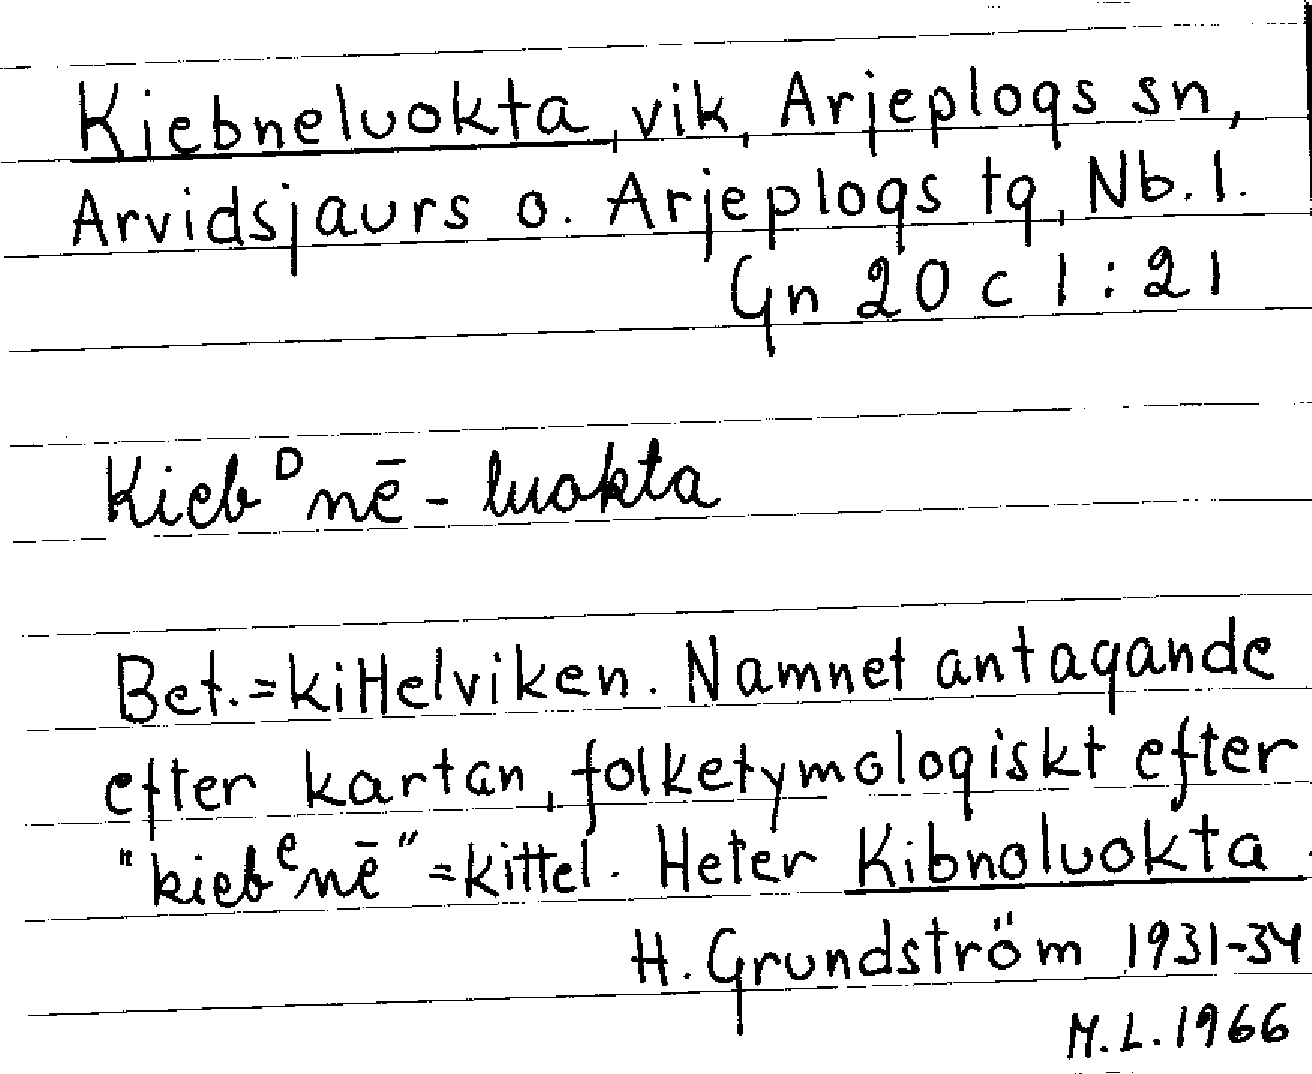 Kiebneluokta, vik, Arjeplogs sn,
Arvidsjaurs o. Arjeplogs tg, Nb. l.
Gn 20 c 1:21
Kiebᴰnē-luokta
Bet.=kittelviken. Namnet antagande
efter kartan, folketymologiskt efter
"kiebᵉnē"=kittel. Heter Kibnoluokta.
H. Grundström 1931-34
M.L. 1966